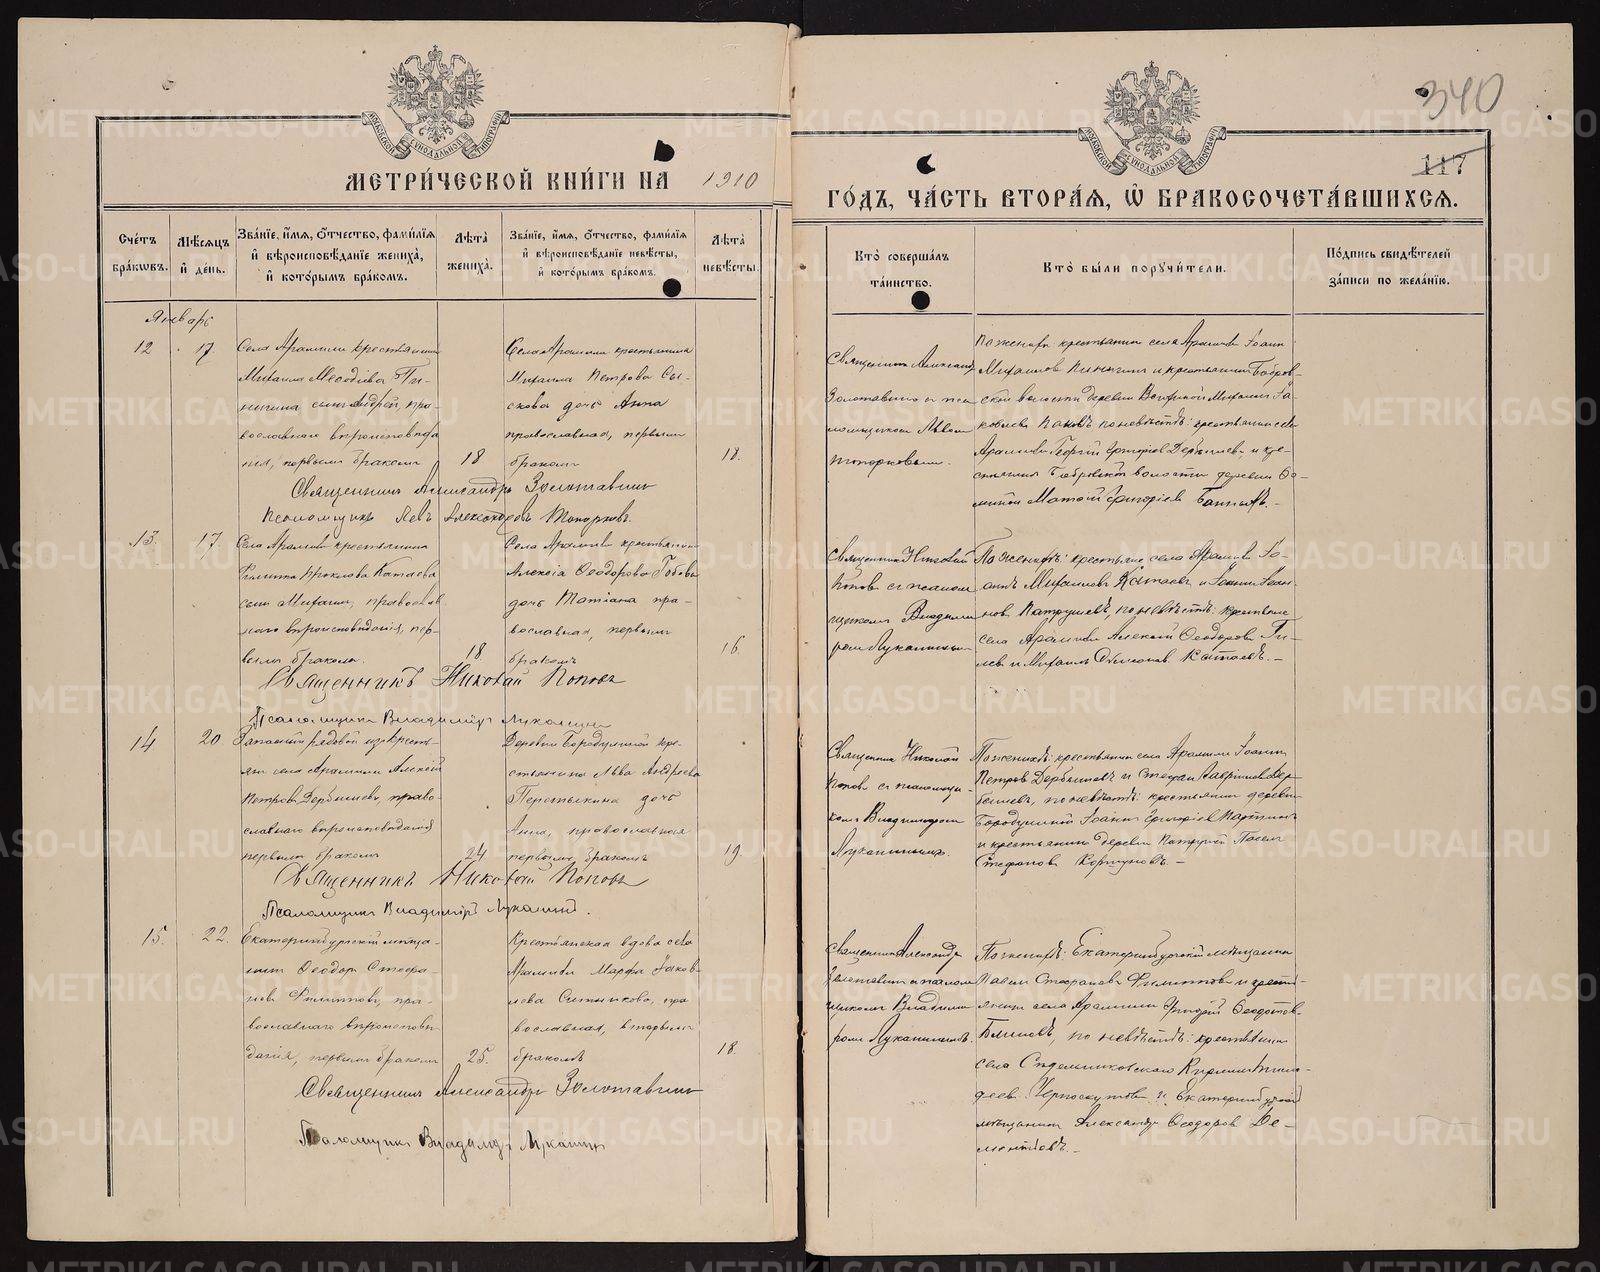 340
117
МОСКОВСКОЙ СѴНОДАЛЬНОЙ ТИПОГРАФІИ
МОСКОВСКОЙ СѴНОДАЛЬНОЙ ТИПОГРАФІИ
МЕТРИ́ЧЕСКОЙ КНИ́ГИ НА 1910
ГО́ДЪ, ЧА́СТЬ ВТОРА́Ѧ, Ѡ҆ БРАКОСОЧЕТА́ВШИХСѦ.
Сче́тъ бра́кѡвъ.
Мѣ́сѧцъ и҆ де́нь.
Зва́нїе, и҆́мѧ, ѻ҆́тчество, фами́лїѧ и҆ вѣроисповѣ́данїе жениха̀, и҆ кото́рымъ бра́комъ.
Лѣ́та жениха̀.
Зва́нїе, и҆́мѧ, ѻ҆́тчество, фами́лїѧ и҆ вѣроисповѣ́данїе невѣ́сты, и҆ кото́рымъ бра́комъ.
Лѣ́та невѣ́сты.
Кто̀ соверша́лъ та́инство.
Кто̀ бы́ли порꙋчи́тели.
По́дпись свидѣ́телей за́писи по жела́нїю.
Январь
12
17
Села Арамили крестьянина
Михаила Меѳодіева Пи-
нигина сынъ Андрей, пра-
вославнаго вѣроисповѣда
нія, первымъ бракомъ
18
Села Арамили крестьянина
Михаила Петрова Сы-
скова дочь Анна
православная, первымъ
бракомъ
18.
Священникъ Александръ
Золотавинъ съ пса
ломщикомъ Львомъ
Топорковымъ.
По женихѣ: крестьянинъ села Арамили Іоаннъ
Михаиловъ Пинигинъ и крестьянинъ Бобров-
ской волости деревни
ковлевъ по невѣстѣ: крестьянинъ села
Арамили Георгій Григорьевъ Дербышевъ и кре-
стьянинъ Бобровской волости деревни
Матѳей Григорьевъ
Священникъ Александръ Золотавинъ
Псаломщикъ Левъ Александровъ Топорковъ.
13.
17.
Села Арамили крестьянина
Филиппа Прокловa Катаева
сынъ Михаилъ, православ
наго вѣроисповѣданія, пер-
вымъ бракомъ.
18
Села Арамили крестьянина
Алексія Ѳеодорова
дочь Татіана пра-
вославная, первымъ
бракомъ
16.
Священникъ Николай
Поповъ съ псалом
щикомъ Владими
ромъ Лукинымъ
По женихѣ: крестьяне села Арамили Іо-
аннъ Михаиловъ Катаевъ и Іоаннъ Іоан-
новъ Патрушевъ, по невѣстѣ: крестьяне
села Арамили Алексій Ѳеодоровъ
и Михаилъ Симеоновъ Катаевъ.—
Священникъ Николай Поповъ
Псаломщикъ Владиміръ
14
20.
Запасный рядовой изъ кресть-
янъ села Арамили Алексій
Петровъ Дербышевъ, право-
славнаго вѣроисповѣданія
первымъ бракомъ
24
Деревни Бородулиной кре-
стьянина Льва Андреева
дочь
Анна, православная
первымъ бракомъ
19.
Священникъ Николай
Поповъ съ псаломщи-
комъ Владиміромъ
По женихѣ: крестьяне села Арамили Іоаннъ
Петровъ Дербышевъ и Стефанъ Гавріиловъ Дер-
бышевъ, по невѣстѣ: крестьянинъ деревни
Бородулиной Іоаннъ Григорьевъ
и крестьянинъ деревни Павелъ
Стефановъ Коршуновъ.—
Священникъ Николай Поповъ
Псаломщикъ Владиміръ
15.
22.
Екатеринбургскій мѣща-
нинъ Ѳеодоръ Стефа-
новъ Филипповъ, пра-
вославнаго вѣроисповѣ
данія, первымъ бракомъ
25.
Крестьянская вдова села
Арамили Марѳа Іаков-
лева Ситникова, пра
вославная, вторымъ
бракомъ
18.
Священникъ Александръ
Золотавинъ съ псалом
щикомъ Владими
ромъ
По женихѣ: Екатеринбургскій мѣщанинъ
Павелъ Стефановъ Филипповъ и кресть-
янинъ села Арамили Ѳеодотовъ
по невѣстѣ: крестьянинъ
села Кириллъ
Черноскутовъ и Екатеринбургскій
мѣщанинъ Александръ Ѳеодоровъ Де-
ментьевъ.—
Священникъ Александръ Золотавинъ
Псаломщикъ Владиміръ
METRIKI.GASO-URAL.RU